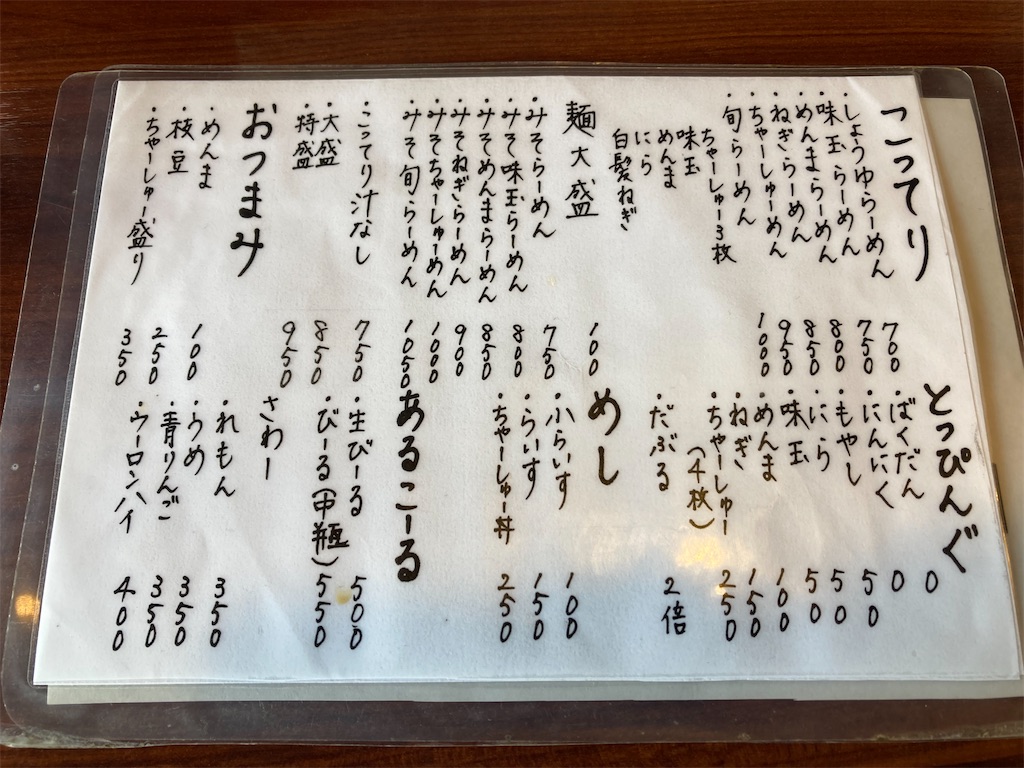 こってり
・しょうゆらーめん 700
・味玉らーめん 750
・めんまらーめん 800
・ねぎらーめん 850
・ちゃーしゅーめん 950
・旬らーめん 1000
ちゃーしゅー3枚
味玉
めんま
にら
白髪ねぎ
麺大盛 100
・みそらーめん 750
・みそ味玉らーめん 800
・みそめんまらーめん 850
・みそねぎらーめん 900
・みそちゃーしゅーめん 1000
・みそ旬らーめん 1050
・こってり汁なし 750
・大盛 850
・特盛 950
おつまみ
・めんま 100
・枝豆 250
・ちゃーしゅー盛り 350
とっぴんぐ
・ばくだん 0
・にんにく 0
・もやし 50
・にら 50
・味玉 50
・めんま 100
・ねぎ 150
・ちゃーしゅー(4枚) 250
・だぶる 2倍
めし
・小らいす 100
・らいす 150
・ちゃーしゅー丼 250
あるこーる
・生びーる 500
・びーる(中瓶) 550
さわー
・れもん 350
・うめ 350
・青りんご 350
・ウーロンハイ 400